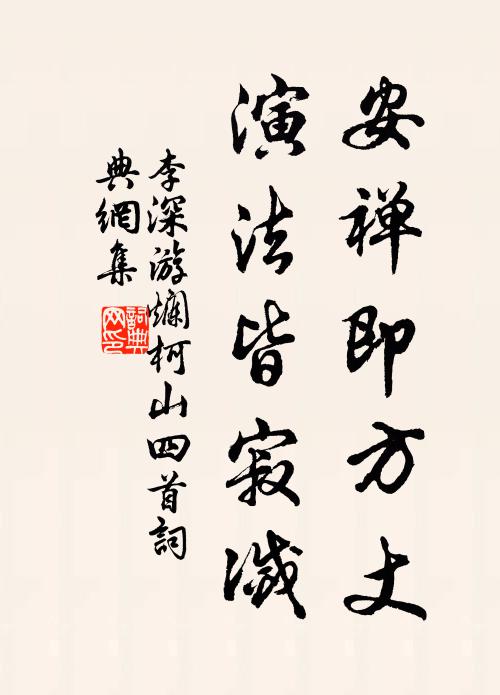 安禅即方丈
演法皆寂滅
李深游爛柯山四首詞
典網集
詞典网印